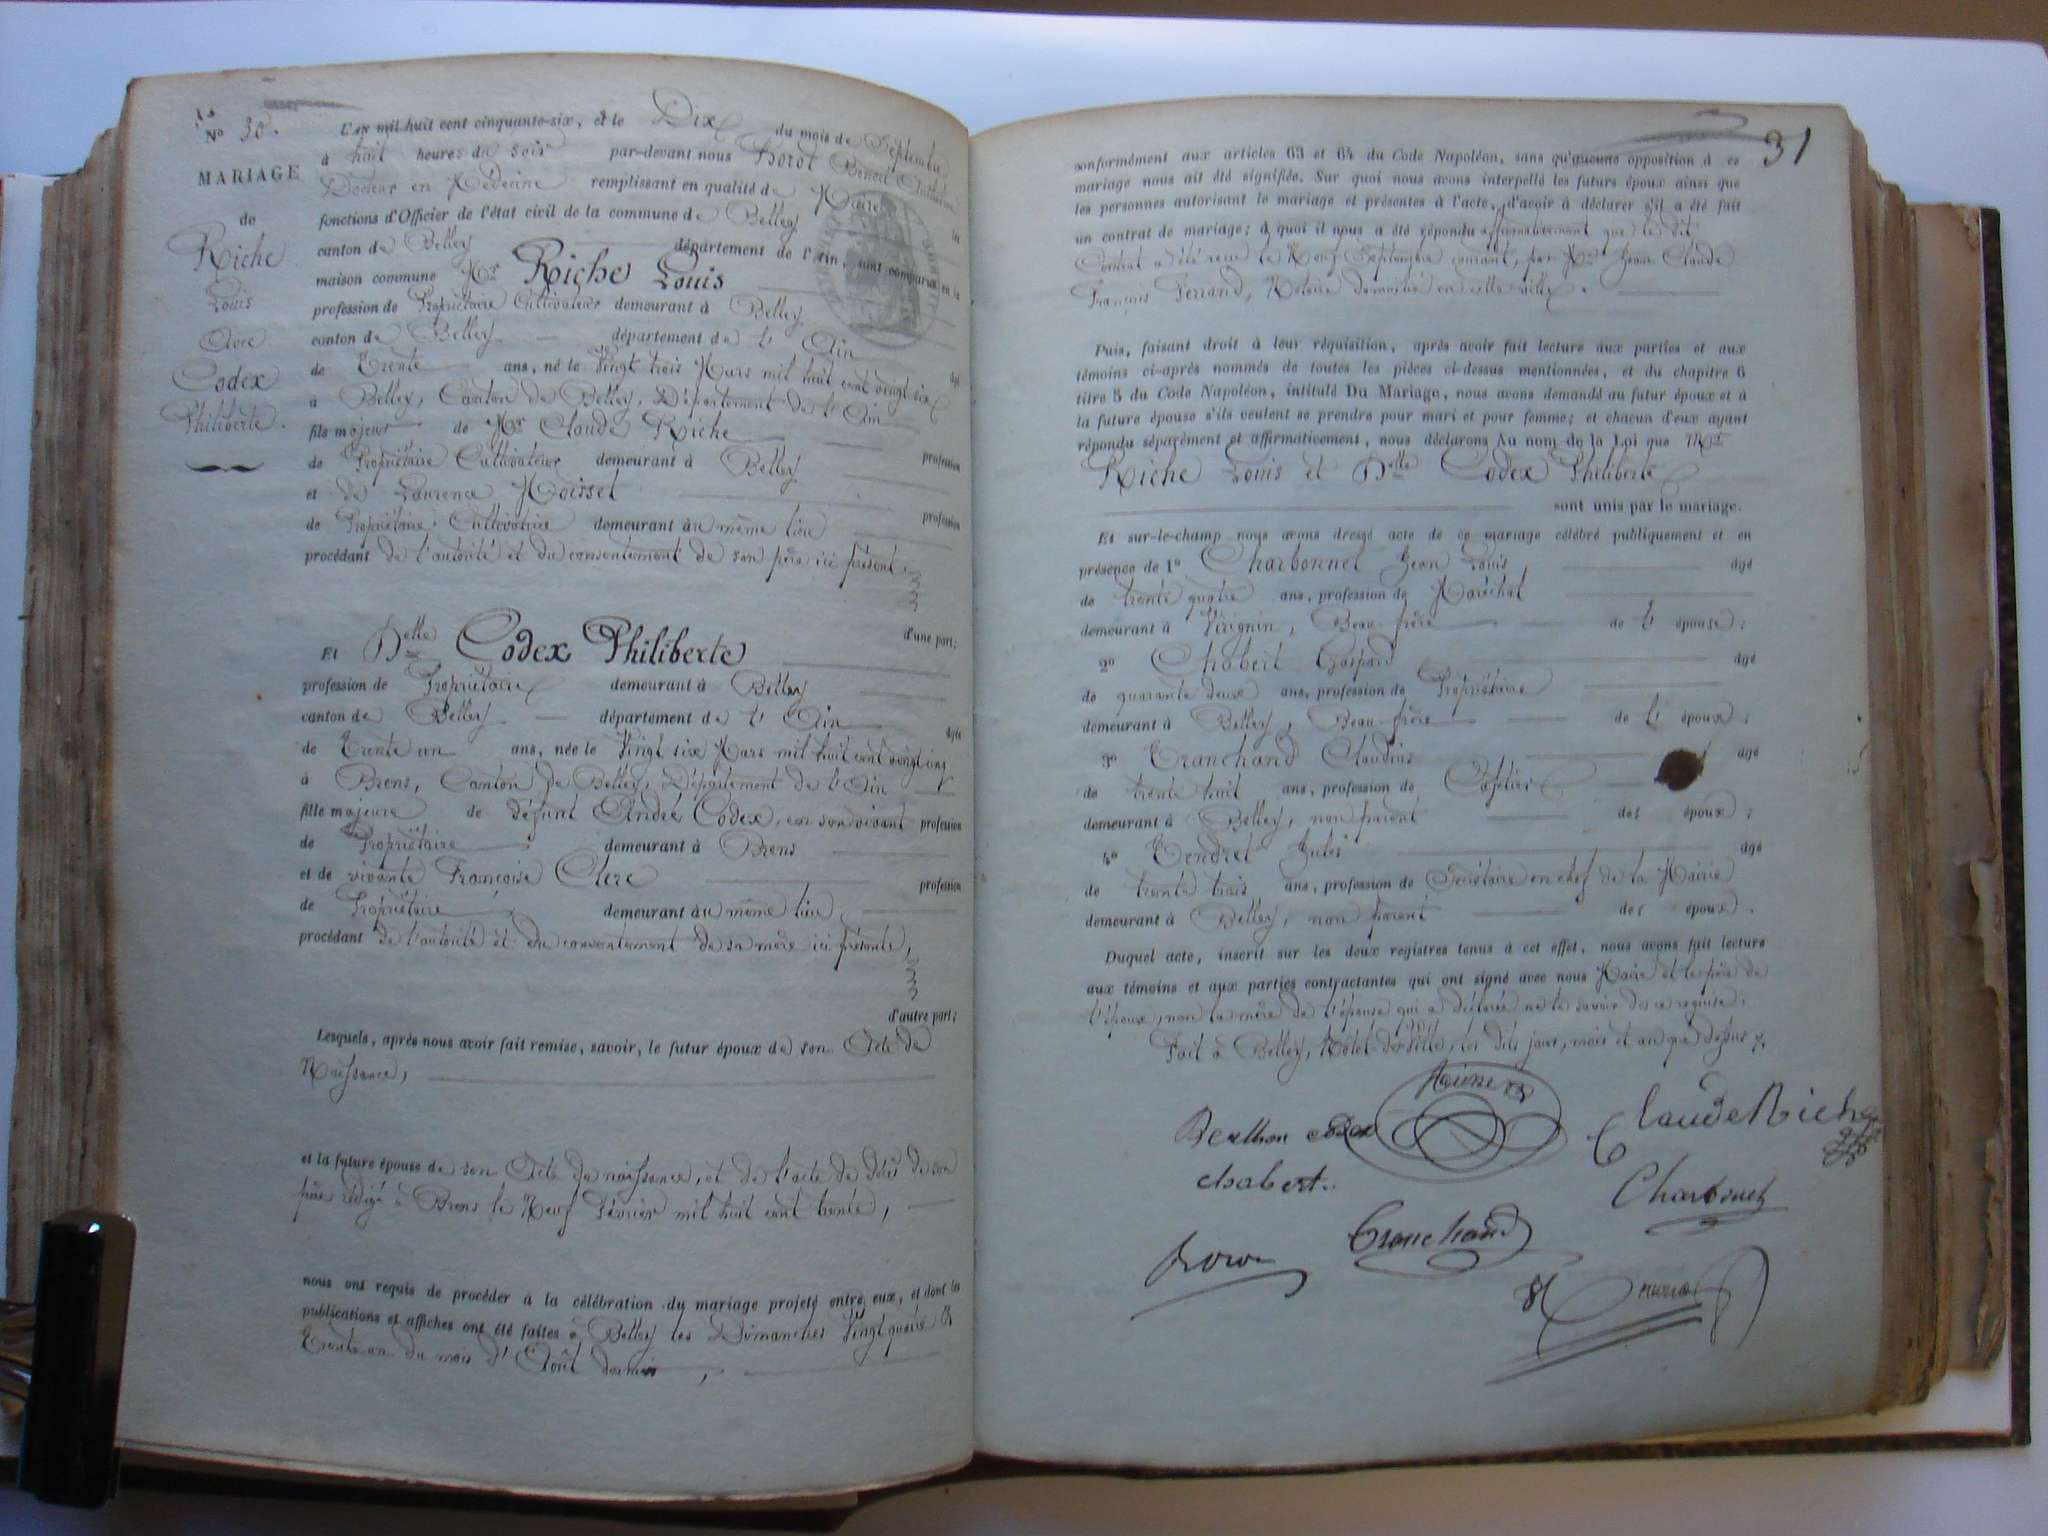 No 30.
MARIAGE
de
Riche
Louis
Avec
Codex
Philiberte.
L'an mil huit cent cinquante-six, et le Dix du mois de Septembre
à huit heures du soir par-devant nous Benoit
Docteur en Médecine remplissant en qualité de Maire les
fonctions d'Officier de l'état civil de la commune de Belley
canton de Belley département de l'Ain, sont comparus en la
maison commune Mr Riche Louis
profession de Propriétaire Cultivateur demeurant à Belley
canton de Belley département de l'Ain âgé
de Trente ans, né le Vingt trois Mars mil huit cent vingt six
à Belley, Canton de Belley, Département de l'Ain
fils majeur de Mr Claude Riche profession
de Propriétaire Cultivateur demeurant à Belley
et de Laurence Moisset profession
de Propriétaire Cultivatrice demeurant au même lieu
procédant de l'autorité et du consentement de son père ici présent,
d'une part;
Et Delle Codex Philiberte
profession de Propriétaire demeurant à Belley
canton de Belley département de l'Ain âgée
de Trente un ans, née le Vingt six Mars mil huit cent vingt cinq
à Brens, Canton de Belley, Département de l'Ain
fille majeure de défunt André Codex, en son vivant profession
de Propriétaire demeurant à Brens
et de vivante Françoise Clerc profession
de Propriétaire demeurant au même lieu
procédant de l'autorité et du consentement de sa mère ici présente,
d'autre part;
Lesquels, après nous avoir fait remise, savoir, le futur époux de son Acte de
Naissance,
et la future épouse de son Acte de naissance, et de l'acte de décès de son
père rédigé à Brens le Neuf Février mil huit cent trente,
nous ont requis de procéder à la célébration du mariage projeté entre eux, et dont les
publications et affiches ont été faites à Belley les Dimanches Vingt quatre &
Trente un du mois d'Août dernier,
31
conformément aux articles 63 et 64 du Code Napoléon, sans qu'aucune opposition à ce
mariage nous ait été signifiée. Sur quoi nous avons interpellé les futurs époux ainsi que
les personnes autorisant le mariage et présentes à l'acte, d'avoir à déclarer s'il a été fait
un contrat de mariage; à quoi il nous a été répondu affirmativement que le dit
Contrat a été reçu le Neuf Septembre courant, par Me Jean Claude
François Ferrand, Notaire domicilié en cette ville.
Puis, faisant droit à leur réquisition, après avoir fait lecture aux parties et aux
témoins ci-après nommés de toutes les pièces ci-dessus mentionnées, et du chapitre 6
titre 5 du Code Napoléon, intitulé Du Mariage, nous avons demandé au futur époux et à
la future épouse s'ils veulent se prendre pour mari et pour femme; et chacun d'eux ayant
répondu séparément et affirmativement, nous déclarons Au nom de la Loi que Mr
Riche Louis et Delle Codex Philiberte
sont unis par le mariage.
Et sur-le-champ nous avons dressé acte de ce mariage célébré publiquement et en
présence de 1º Charbonnel Jean Louis âgé
de trente quatre ans, profession de Maréchal
demeurant à Virignin, Beau-frère de l'épouse;
2º Chabert Gaspard âgé
de quarante deux ans, profession de Propriétaire
demeurant à Belley, Beau-frère de l'époux;
3º Tranchand Claudius âgé
de trente huit ans, profession de
demeurant à Belley, non parent des époux;
4º Tendret Jules âgé
de trente trois ans, profession de Secrétaire en chef de la Mairie
demeurant à Belley, non parent des époux.
Duquel acte, inscrit sur les deux registres tenus à cet effet, nous avons fait lecture
aux témoins et aux parties contractantes qui ont signé avec nous Maire et le père de
l'époux, non la mère de l'épouse qui a déclaré ne le savoir de ce requise.
Fait à Belley, Hôtel de Ville, les dits jour, mois et an que dessus.
codex
Claude Riche
chabert.
Charbonnel
Tranchand